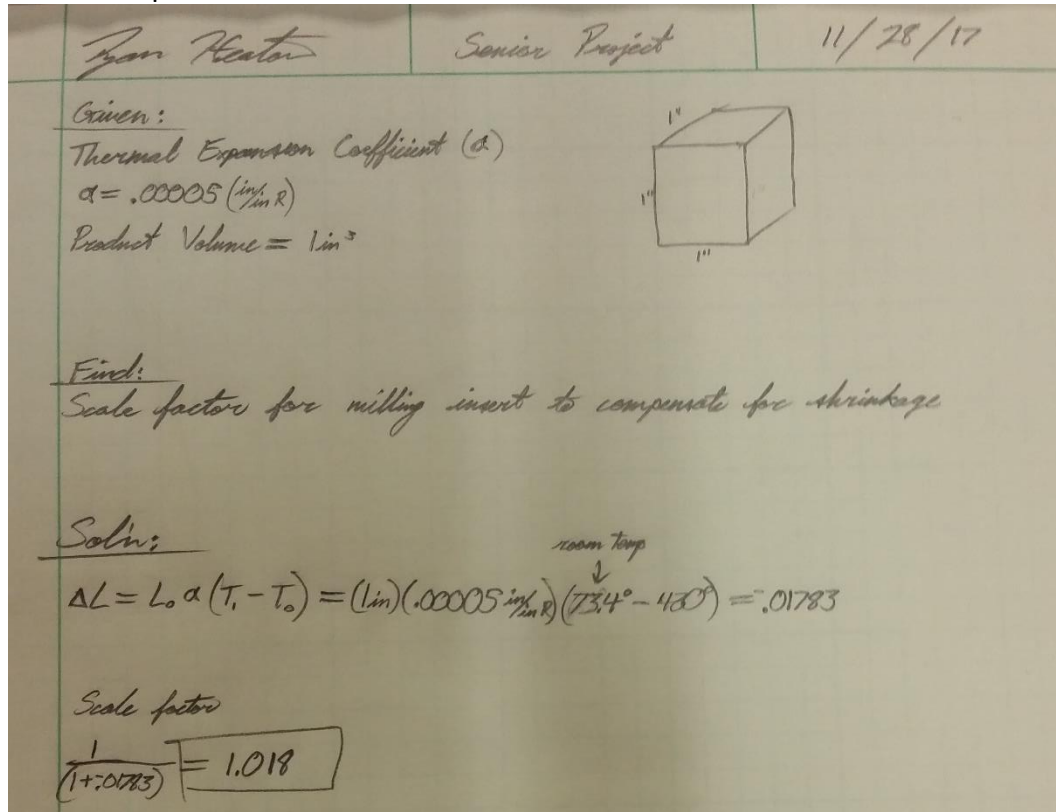 Ryan Heaton Senior Project 11/28/17
Given:
Thermal Expansion Coefficient (α)
α = .00005 (in/in R)
Product Volume = 1 in³
1"
1"
1"
Find:
Scale factor for milling insert to compensate for shrinkage
Sol'n:
room temp
↓
ΔL = L₀ α (T₁ - T₀) = (1in)(.00005 in/in R)(73.4° - 430°) = -.01783
Scale factor
1/(1+-.01783) = 1.018